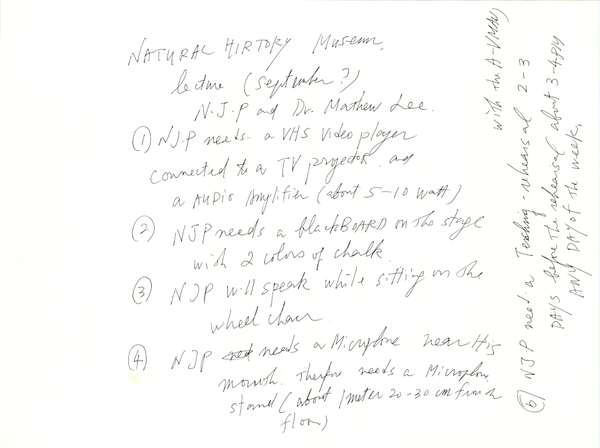 NATURAL HIRTORY Museum.
lecture (september?)
N.J.P and Dr. Mathew Lee.
① NJP needs a VHS video player
connected to a TV projector and
a AUDIO Amplifier (about 5-10 watt)
② NJP needs a blackBOARD on the stage
with 2 colors of chalk.
③ NJP will speak while sitting on the
wheel chair.
④ NJP needs a Microphone near His
mouth. Therefor needs a Microphone
stand (about 1 meter 20-30 cm from
floor)
⑥ NJP need a Teaching-rehearsal 2-3
DAYS before the rehearsal about 3-4 PM
ANY DAY of the week,
with the A-V